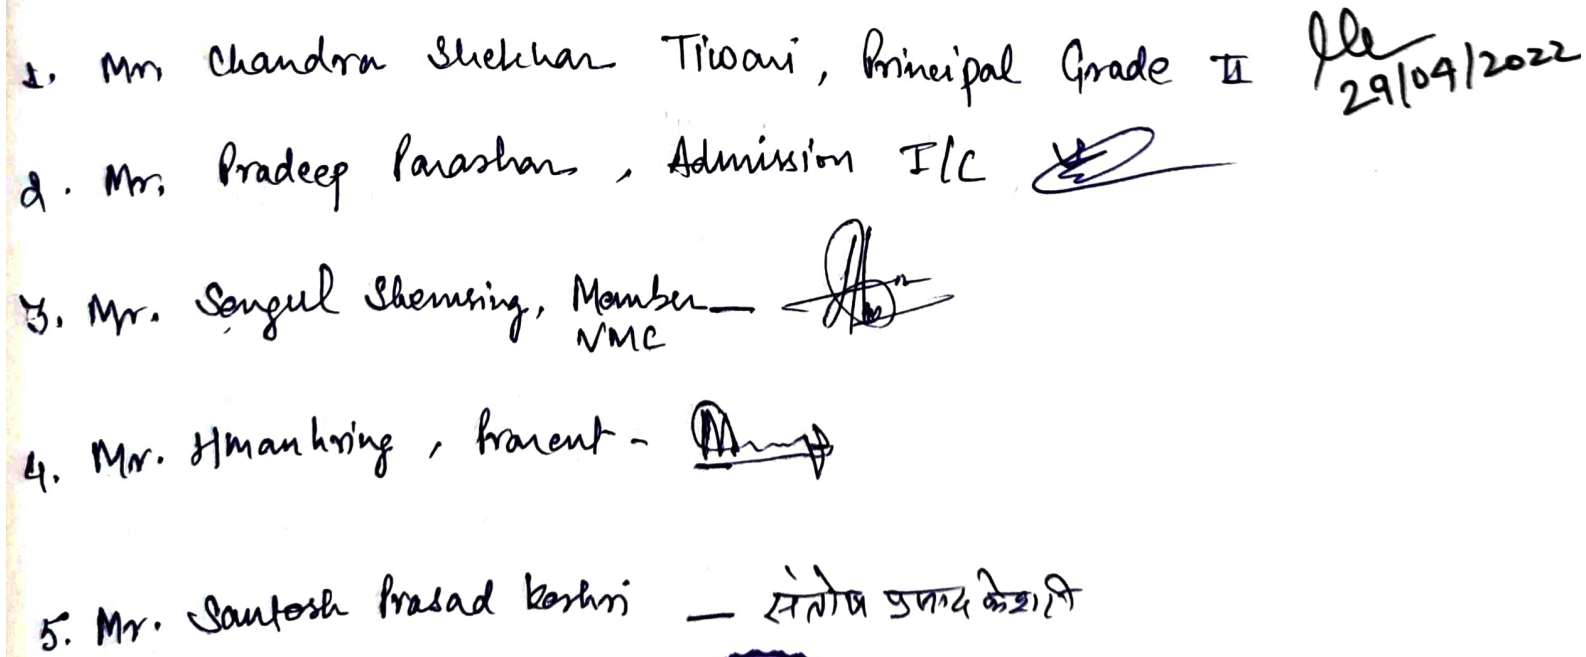 1. Mr. Chandra Shekhar Tiwari, Principal Grade II
29/04/2022
2. Mr. Pradeep Parashar, Admission I/C
3. Mr. Songul Shemsing, Member
VMC
4. Mr. Hmanhring, Parent -
5. Mr. Santosh Prasad Keshri — संतोष प्रसाद केशरी